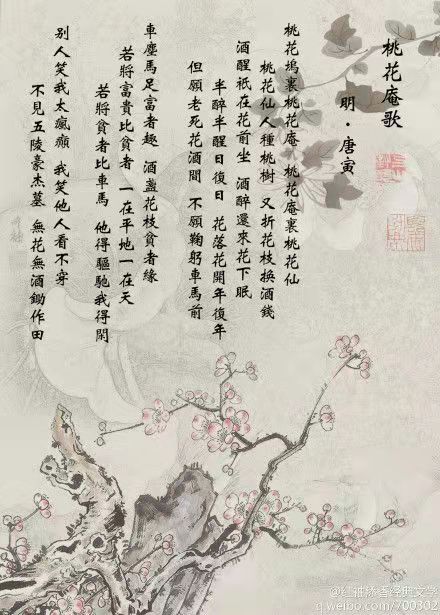 桃花庵歌
明·唐寅
桃花塢裏桃花庵 桃花庵裏桃花仙
桃花仙人種桃樹 又折花枝換酒錢
酒醒祇在花前坐 酒醉還來花下眠
半醉半醒日復日 花落花開年復年
但願老死花酒間 不願鞠躬車馬前
車塵馬足富者趣 酒盞花枝貧者緣
若將富貴比貧者 一在平地一在天
若將貧者比車馬 他得驅馳我得閑
別人笑我太瘋癲 我笑他人看不穿
不見五陵豪杰墓 無花無酒鋤作田
@红袖添香经典文学
g.weibo.com/700302